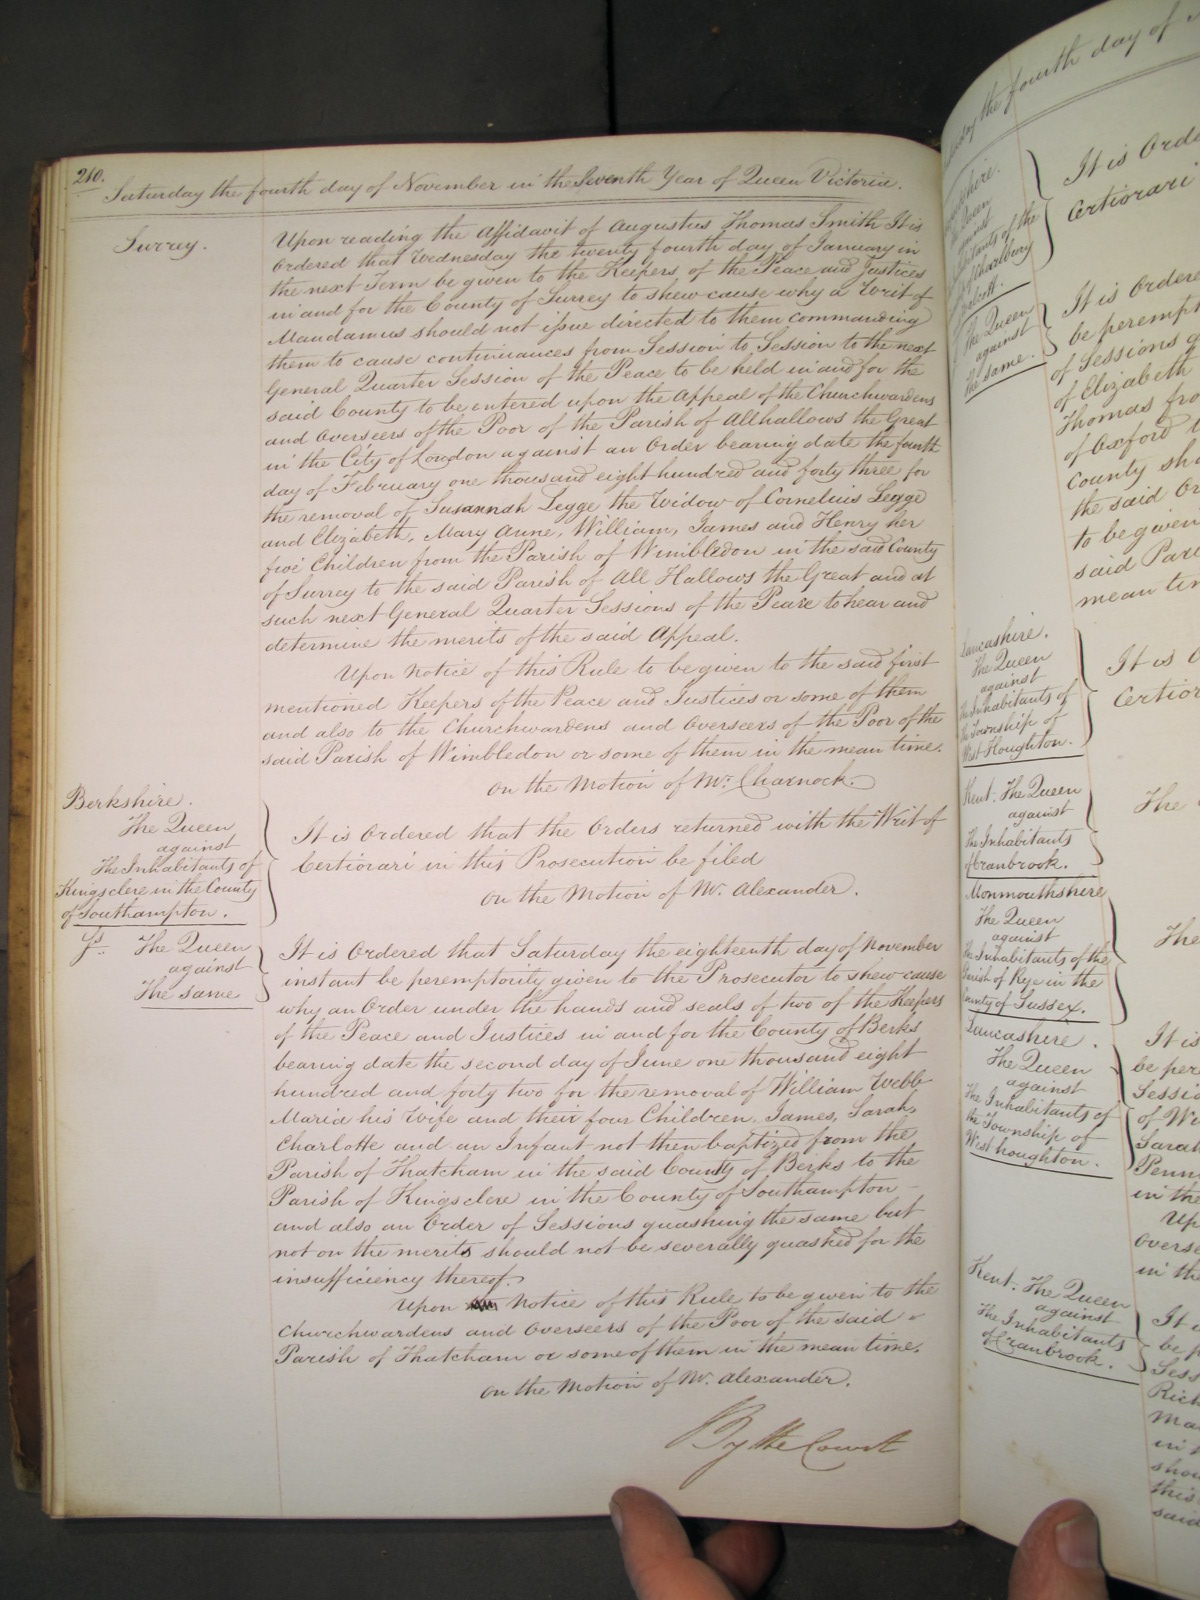 210.
Saturday the fourth day of November in the Seventh Year of Queen Victoria.
Surrey.
Upon reading the Affidavit of Augustus Thomas Smith It is
Ordered that Wednesday the twenty fourth day of January in
the next Term be given to the Keepers of the Peace and Justices
in and for the County of Surrey to shew cause why a Writ of
Mandamus should not issue directed to them commanding
them to cause continuances from Session to Session to the next
General Quarter Session of the Peace to be held in and for the
said County to be entered upon the Appeal of the Churchwardens
and Overseers of the Poor of the Parish of Allhallows the Great
in the City of London against an Order bearing date the fourth
day of February one thousand eight hundred and forty three for
the removal of Susannah Legge the Widow of Cornelius Legge
and Elizabeth, Mary Anne, William, James and Henry her
five Children from the Parish of Wimbledon in the said County
of Surrey to the said Parish of All Hallows the Great and at
such next General Quarter Sessions of the Peace to hear and
determine the merits of the said Appeal.
Upon Notice of this Rule to be given to the said first
mentioned Keepers of the Peace and Justices or some of them
and also to the Churchwardens and Overseers of the Poor of the
said Parish of Wimbledon or some of them in the mean time.
On the Motion of Mr. Charnock.
Berkshire.
The Queen
against
The Inhabitants of
Kingsclere in the County
of Southampton.
It is Ordered that the Orders returned with the Writ of
Certiorari in this Prosecution be filed
On the Motion of Mr. Alexander.
The Queen
against
The same
It is Ordered that Saturday the eighteenth day of November
instant be peremptorily given to the Prosecutor to shew cause
why an Order under the hands and seals of two of the Keepers
of the Peace and Justices in and for the County of Berks
bearing date the second day of June one thousand eight
hundred and forty two for the removal of William Webb
Maria his Wife and their four Children, James, Sarah,
Charlotte and an Infant not then baptized from the
Parish of Thatcham in the said County of Berks to the
Parish of Kingsclere in the County of Southampton
and also an Order of Sessions quashing the same but
not on the merits should not be severally quashed for the
insufficiency thereof.
Upon Notice of this Rule to be given to the
Churchwardens and Overseers of the Poor of the said
Parish of Thatcham or some of them in the mean time.
On the Motion of Mr. Alexander.
By the Court
the fourth day of
The Queen
against
of the
It is Orde
Certiorari
The Queen
against
The same.
It is Ordere
be perempt
of Sessions
of Elizabeth
Thomas fro
of Oxford t
County sho
the said Or
to be given
said Pari
mean tim
Lancashire.
The Queen
against
The Inhabitants of
the Township of
West Houghton.
It is O
Certior
Kent. The Queen
against
The Inhabitants
of Cranbrook.
The
Monmouthshire
The Queen
against
The Inhabitants of the
Parish of Rye in the
County of Sussex.
The
Lancashire.
The Queen
against
The Inhabitants of
the Township of
West houghton.
It is
be per
Sessio
of Wi
Sarah
Penn
in the
Up
Overse
in th
Kent. The Queen
against
The Inhabitants
of Cranbrook.
It i
be p
Sess
Rich
Ma
in t
shou
this
said